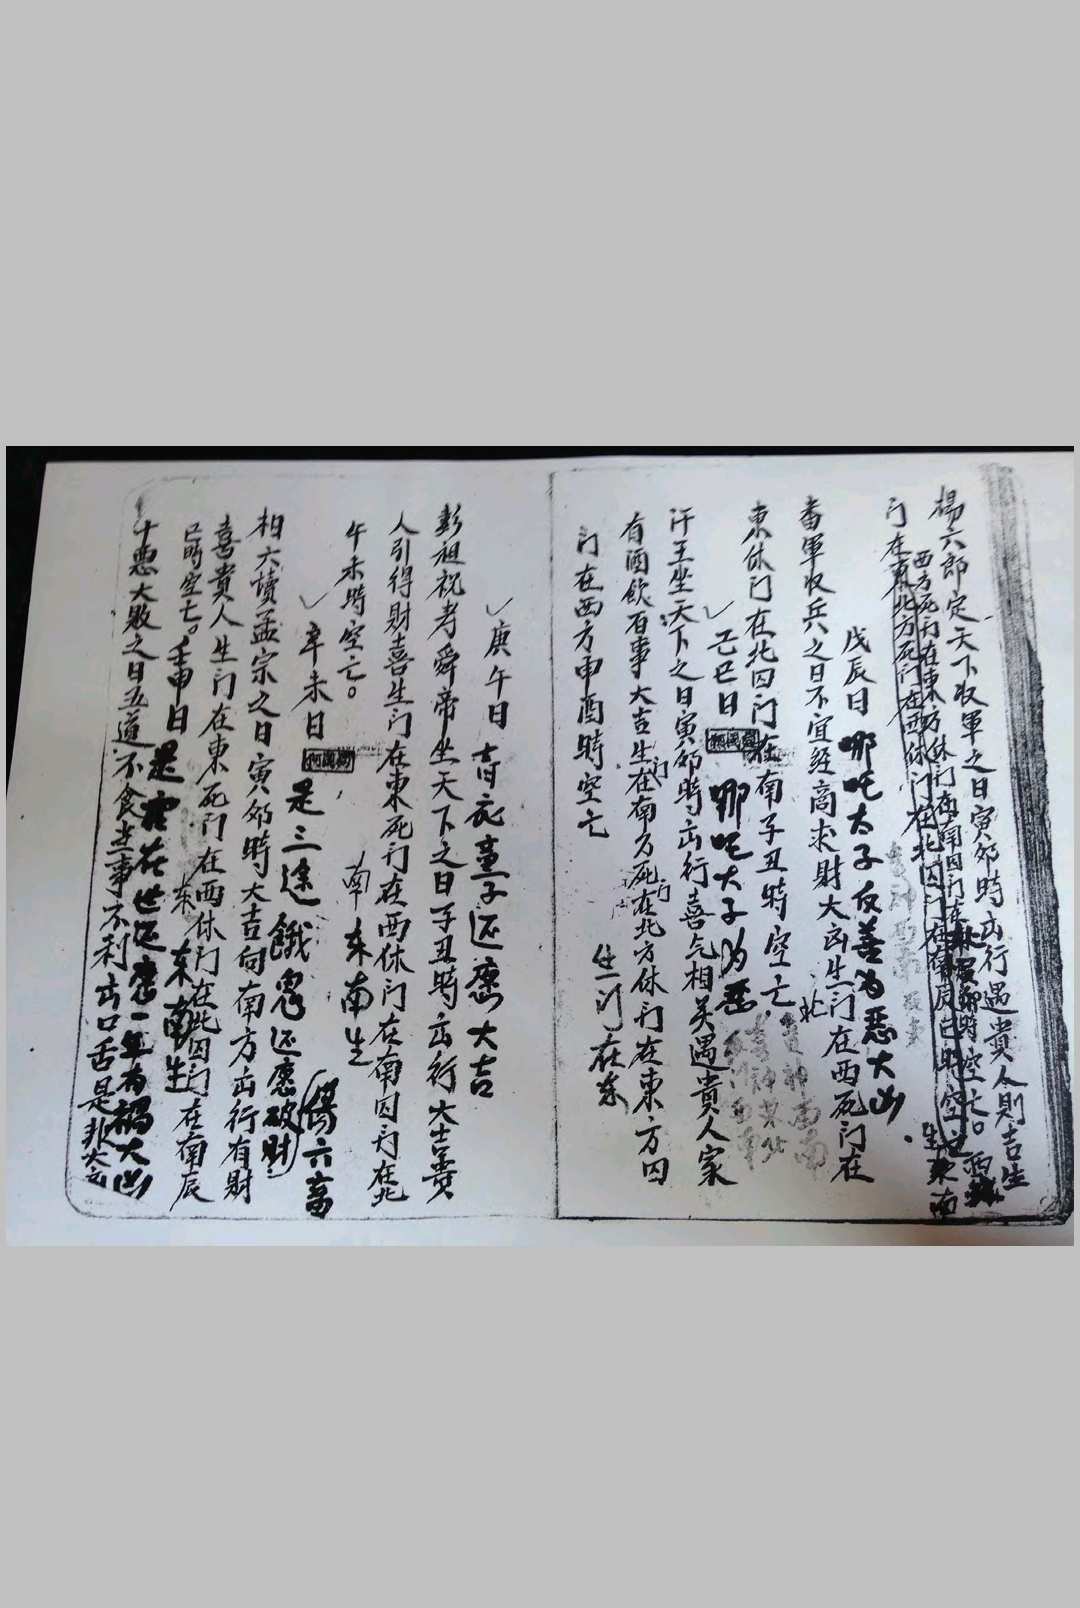 楊六郎定天下收軍之日寅夘時出行遇貴人則吉生
西方死门在東方休门在南囚门在北寅夘時空亡。西
门在東北方死门在西休门在北囚门在南辰巳時空亡
生東南
戊辰日 哪吒太子反善为惡大凶
番軍收兵之日不宜経商求財大凶生门在西死门在
東休门在北囚门在南子丑時空亡
北
貴神西南
己巳日 哪吒太子为惡
汗王坐天下之日寅夘時出行喜气相美遇貴人家
有酒飲百事大吉生门在南方死门在北方休门在東方囚
门在西方申酉時空亡
生门在东
庚午日 青衣童子还愿大吉
彭祖祝考舜帝坐天下之日子丑時出行大吉貴
人引得財喜生门在東死门在西休门在南囚门在北
午未時空亡。
南 东南生
辛未日 是三途餓鬼还愿破財
相六讀孟宗之日寅夘時大吉向南方出行有財
喜貴人生门在東死门在西休门在北囚门在南辰
巳時空亡。
壬申日 是 在世还愿一年有禍大凶
东 东南生
十惡大敗之日五道不食 事不利出口舌是非大凶